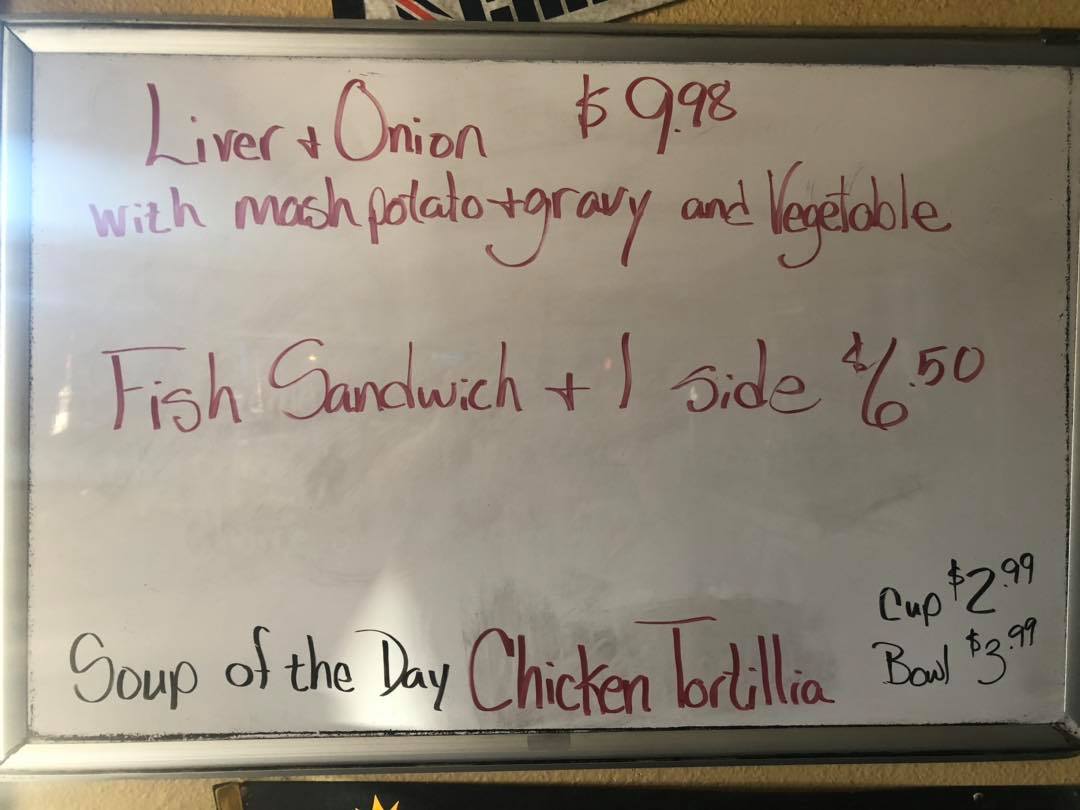 Liver + Onion $9.98
with mash potato + gravy and Vegetable
Fish Sandwich + 1 side $6.50
Cup $2.99
Bowl $3.99
Soup of the Day Chicken Tortillia